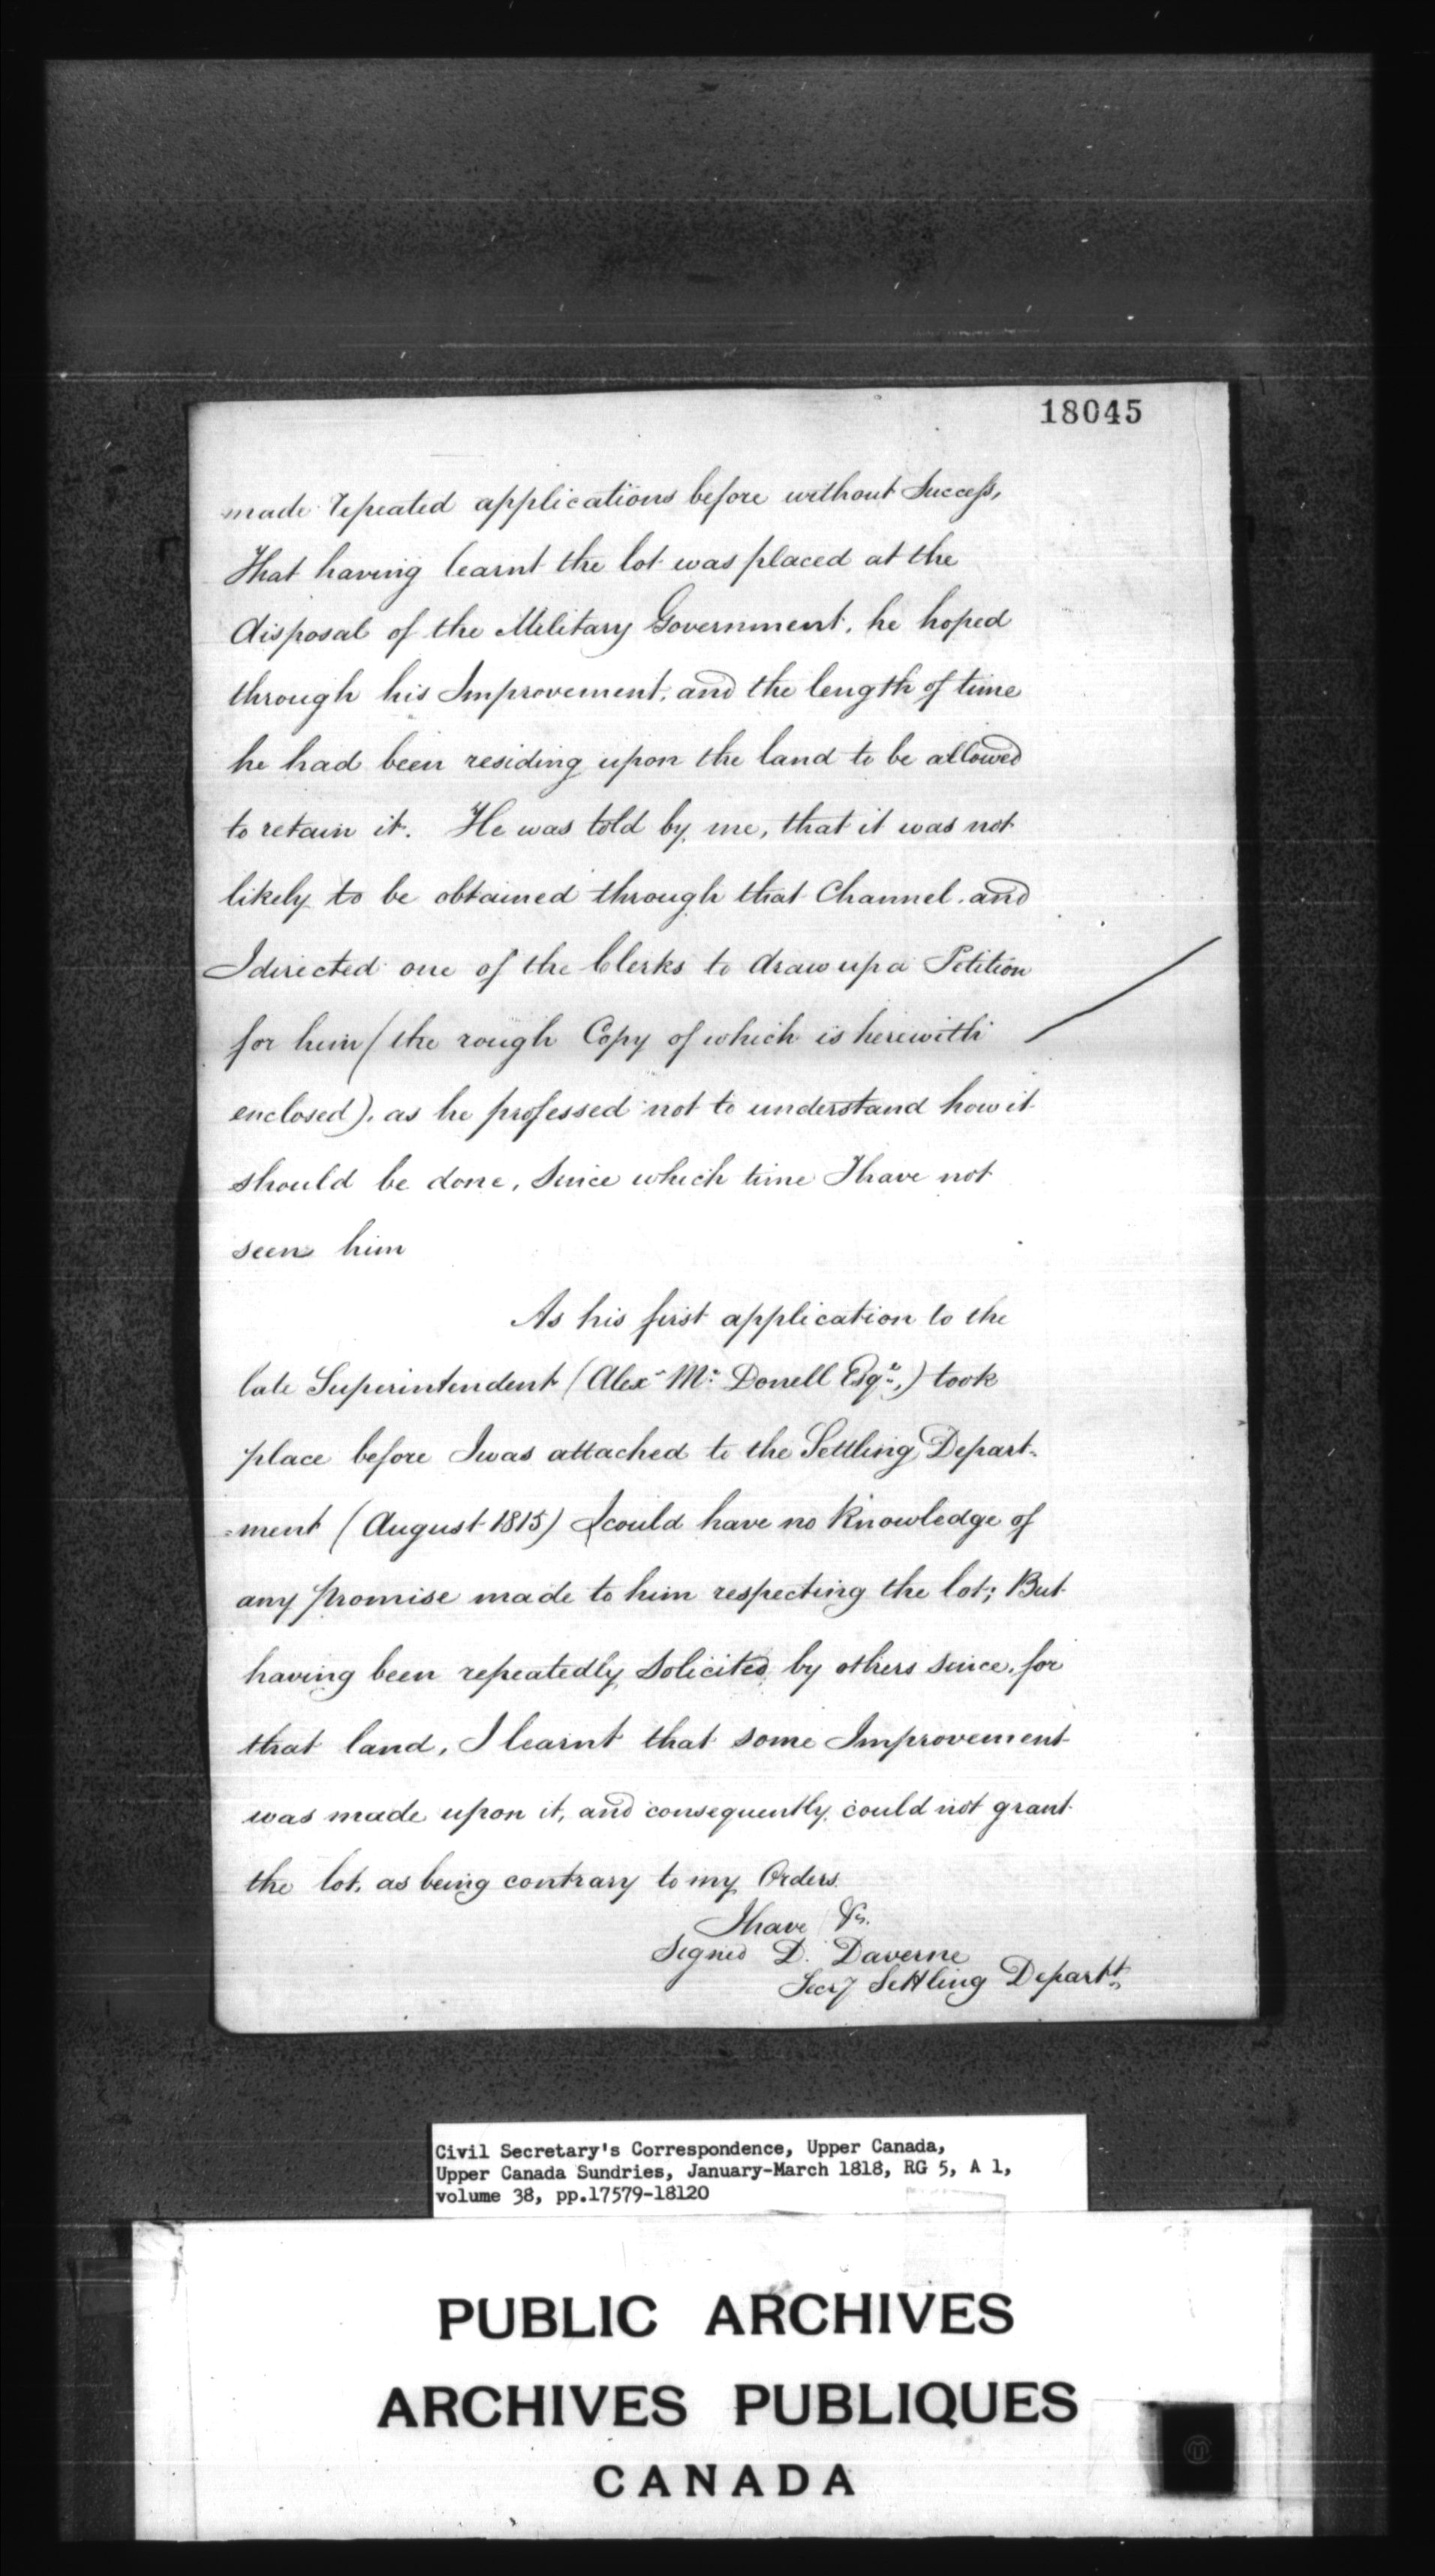 18045
made repeated applications before without Success,
That having learnt the lot was placed at the
disposal of the Military Government, he hoped
through his Improvement, and the length of time
he had been residing upon the land to be allowed
to retain it. He was told by me, that it was not
likely to be obtained through that Channel, and
I directed one of the Clerks to draw up a Petition
for him (the rough Copy of which is herewith
enclosed), as he professed not to understand how it
should be done, Since which time I have not
seen him
As his first application to the
late Superintendent (Alexr Mc Donell Esqre,) took
place before I was attached to the Settling Depart-
=ment (August 1815) I could have no Knowledge of
any Promise made to him respecting the lot; But
having been repeatedly Solicited by others since, for
that land, I learnt that some Improvement
was made upon it, and consequently could not grant
the lot, as being contrary to my Orders.
I have &c.
Signed D. Daverne
Secy Settling Departt.
Civil Secretary's Correspondence, Upper Canada,
Upper Canada Sundries, January-March 1818, RG 5, A 1,
volume 38, pp.17579-18120
PUBLIC ARCHIVES
ARCHIVES PUBLIQUES
CANADA